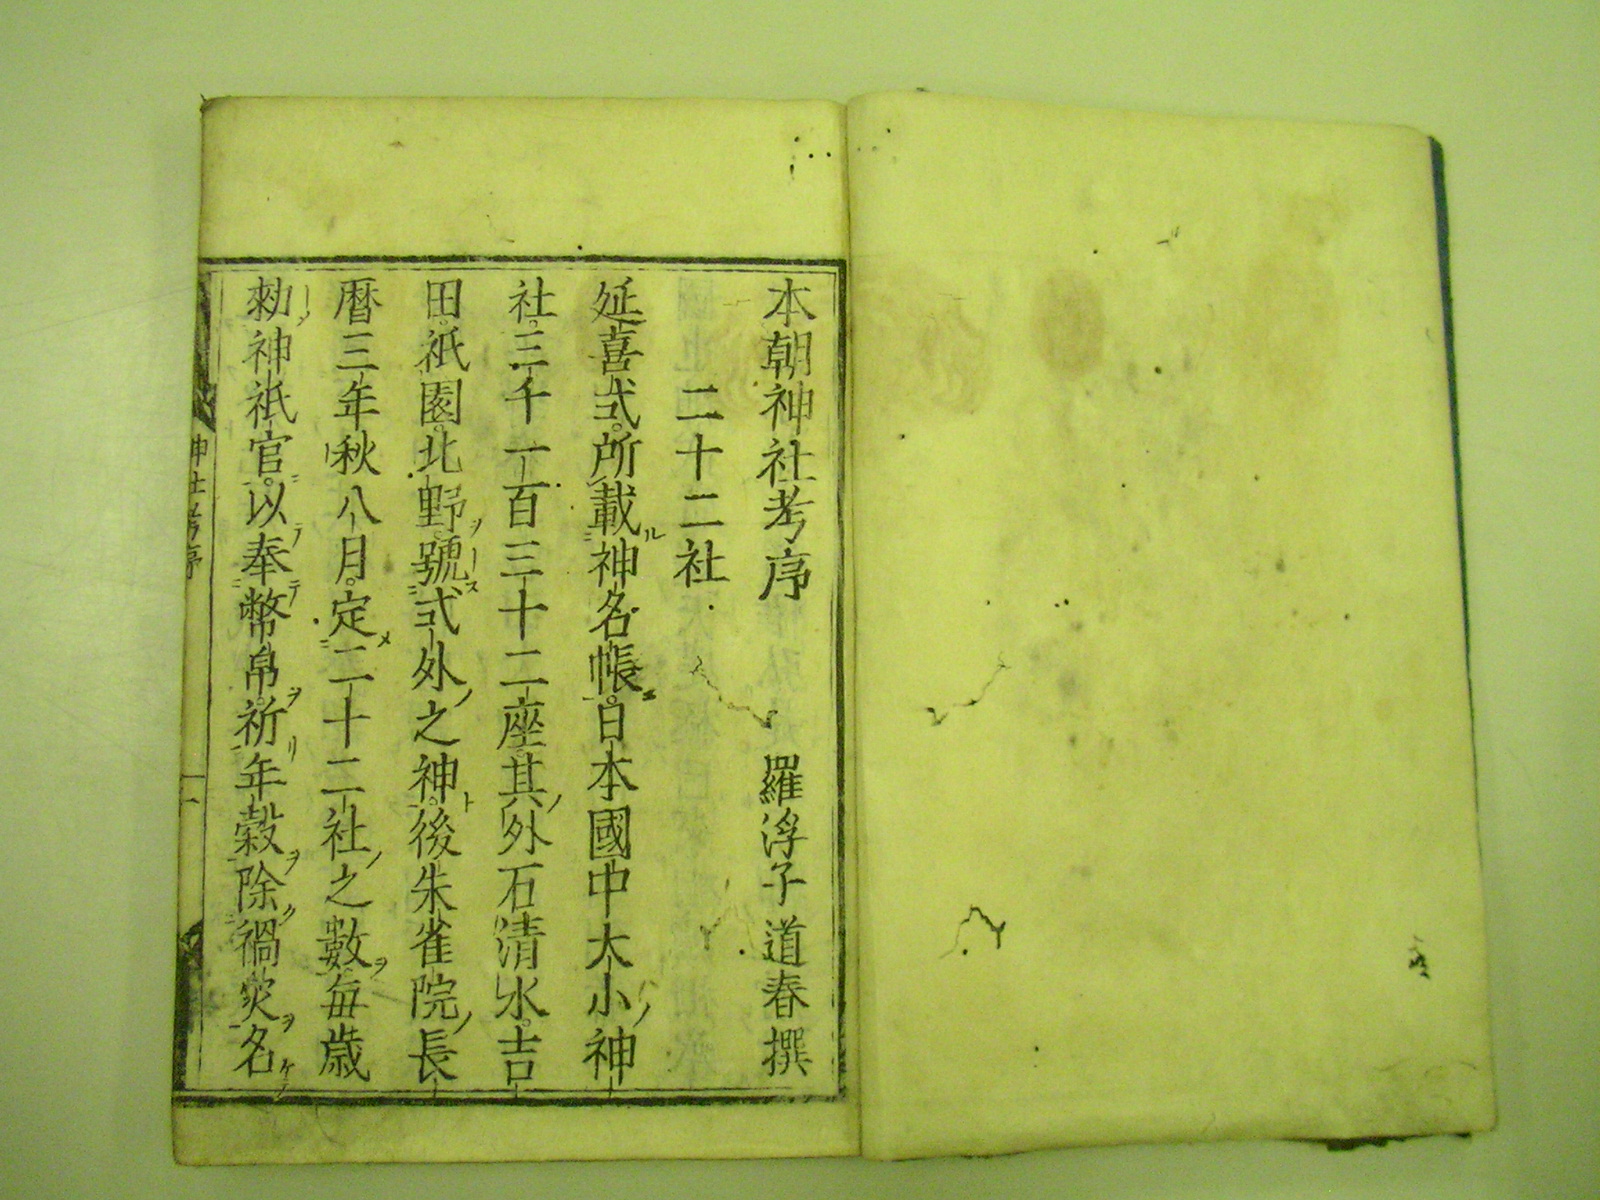 本朝神社考序 羅浮子道春撰
二十二社
延喜式所載神名帳日本國中大小神
社三千一百三十二座其外石清水吉
田祇園北野號式外之神後朱雀院長
暦三年秋八月定二十二社之數毎歳
勅神祇官以奉幣帛祈年穀除禍災名
神社考序 一